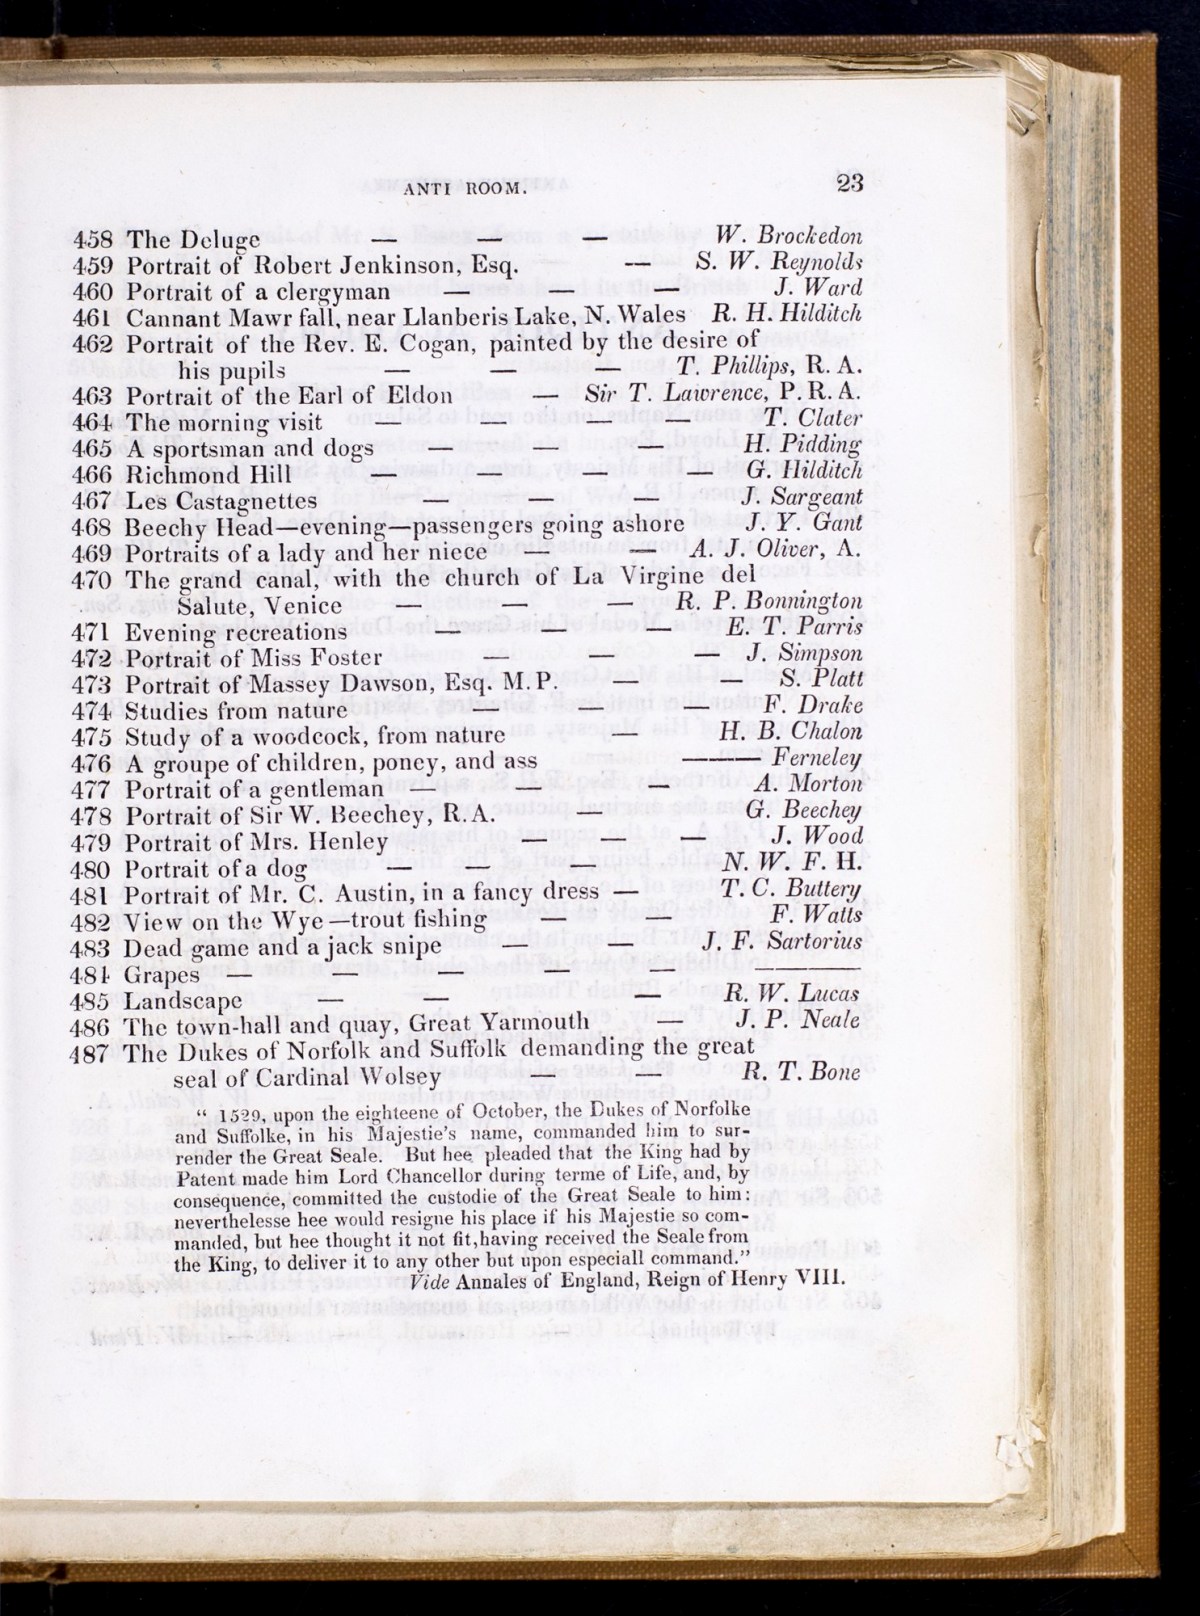 ANTI ROOM. 23
458 The Deluge — — — W. Brockedon
459 Portrait of Robert Jenkinson, Esq. — S. W. Reynolds
460 Portrait of a clergyman — — — J. Ward
461 Cannant Mawr fall, near Llanberis Lake, N. Wales R. H. Hilditch
462 Portrait of the Rev. E. Cogan, painted by the desire of
his pupils — — — T. Phillips, R. A.
463 Portrait of the Earl of Eldon — Sir T. Lawrence, P. R. A.
464 The morning visit — — — — T. Clater
465 A sportsman and dogs — — — H. Pidding
466 Richmond Hill — — — — G. Hilditch
467 Les Castagnettes — — — J. Sargeant
468 Beechy Head—evening—passengers going ashore J. Y. Gant
469 Portraits of a lady and her niece — — A. J. Oliver, A.
470 The grand canal, with the church of La Virgine del
Salute, Venice — — — R. P. Bonnington
471 Evening recreations — — — E. T. Parris
472 Portrait of Miss Foster — — — J. Simpson
473 Portrait of Massey Dawson, Esq. M. P. — S. Platt
474 Studies from nature — — — F. Drake
475 Study of a woodcock, from nature H. B. Chalon
476 A groupe of children, poney, and ass ——— Ferneley
477 Portrait of a gentleman — — — A. Morton
478 Portrait of Sir W. Beechey, R.A. — G. Beechey
479 Portrait of Mrs. Henley — — — J. Wood
480 Portrait of a dog — — — N. W. F. H.
481 Portrait of Mr. C. Austin, in a fancy dress — T. C. Buttery
482 View on the Wye—trout fishing — — F. Watts
483 Dead game and a jack snipe — — J. F. Sartorius
484 Grapes — — — — — ———
485 Landscape — — — R. W. Lucas
486 The town-hall and quay, Great Yarmouth — J. P. Neale
487 The Dukes of Norfolk and Suffolk demanding the great
seal of Cardinal Wolsey — — R. T. Bone
“ 1529, upon the eighteene of October, the Dukes of Norfolke
and Suffolke, in his Majestie's name, commanded him to sur-
render the Great Seale. But hee pleaded that the King had by
Patent made him Lord Chancellor during terme of Life, and, by
consequence, committed the custodie of the Great Seale to him:
neverthelesse hee would resigne his place if his Majestie so com-
manded, but hee thought it not fit, having received the Seale from
the King, to deliver it to any other but upon especiall command.”
Vide Annales of England, Reign of Henry VIII.